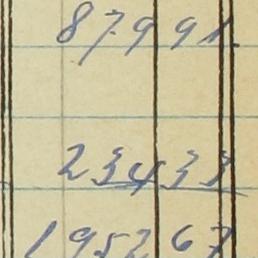 87991
23433
195267